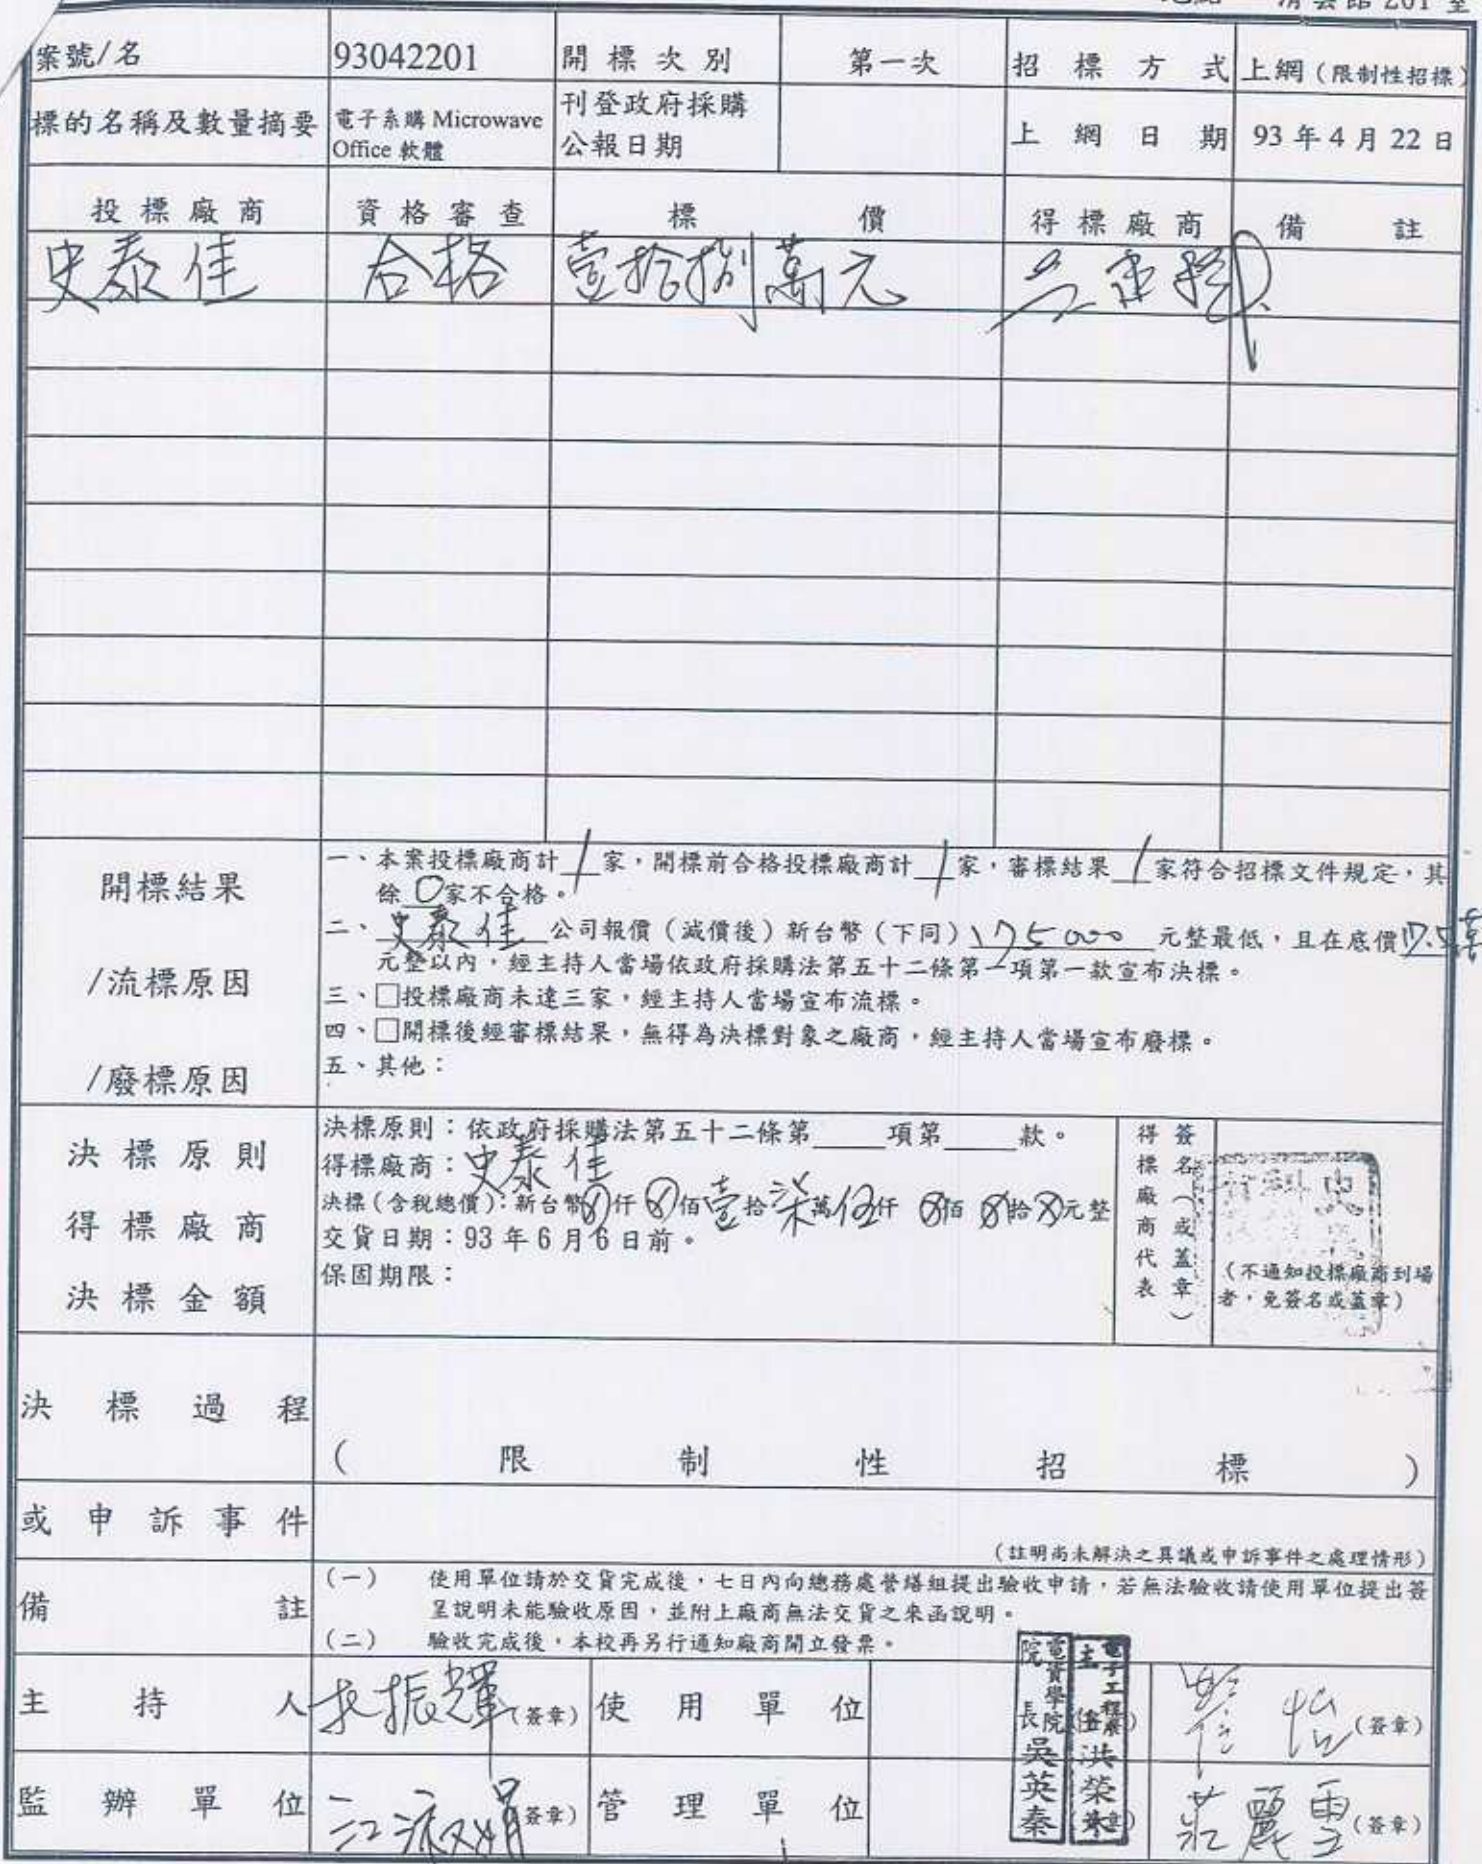 清雲館 201 室
案號/名 93042201 開標次別 第一次 招標方式 上網(限制性招標)
標的名稱及數量摘要 電子系購 Microwave Office 軟體 刊登政府採購公報日期 上網日期 93 年 4 月 22 日
投標廠商 資格審查 標價 得標廠商 備註
史泰佳 合格 壹拾捌萬元
開標結果
/流標原因
/廢標原因
一、本案投標廠商計 1 家,開標前合格投標廠商計 1 家,審標結果 1 家符合招標文件規定,其
餘 0 家不合格。
二、史泰佳 公司報價(減價後)新台幣(下同)175000 元整最低,且在底價 17.5萬
元整以內,經主持人當場依政府採購法第五十二條第一項第一款宣布決標。
三、□投標廠商未達三家,經主持人當場宣布流標。
四、□開標後經審標結果,無得為決標對象之廠商,經主持人當場宣布廢標。
五、其他:
決標原則
得標廠商
決標金額
決標原則:依政府採購法第五十二條第____項第____款。
得標廠商:史泰佳
決標(含稅總價):新台幣⊗仟⊗佰壹拾柒萬伍仟⊗佰⊗拾⊗元整
交貨日期:93 年 6 月 6 日前。
保固期限:
得標廠商代表
簽名(或蓋章)
(不通知投標廠商到場
者,免簽名或蓋章)
決標過程
(限制性招標)
或申訴事件
(註明尚未解決之異議或申訴事件之處理情形)
備註
(一) 使用單位請於交貨完成後,七日內向總務處營繕組提出驗收申請,若無法驗收請使用單位提出簽
呈說明未能驗收原因,並附上廠商無法交貨之來函說明。
(二) 驗收完成後,本校再另行通知廠商開立發票。
主持人 振輝 (簽章) 使用單位 怡 (簽章)
電資學院院長 吳英秦
電子工程系主任 洪榮
監辦單位 江淑娟 (簽章) 管理單位 莊麗雪 (簽章)